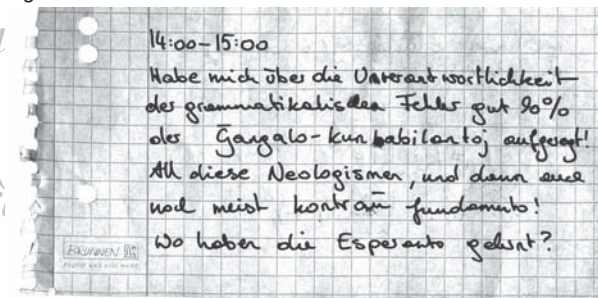 14:00-15:00
Habe mich über die Unverantwortlichkeit
der grammatikalischen Fehler gut 90%
der Gangalo-kunbabilantoj aufgeregt!
All diese Neologismen, und dann auch
noch meist kontraŭ fundamento!
Wo haben die Esperanto gelernt?
BRUNNEN